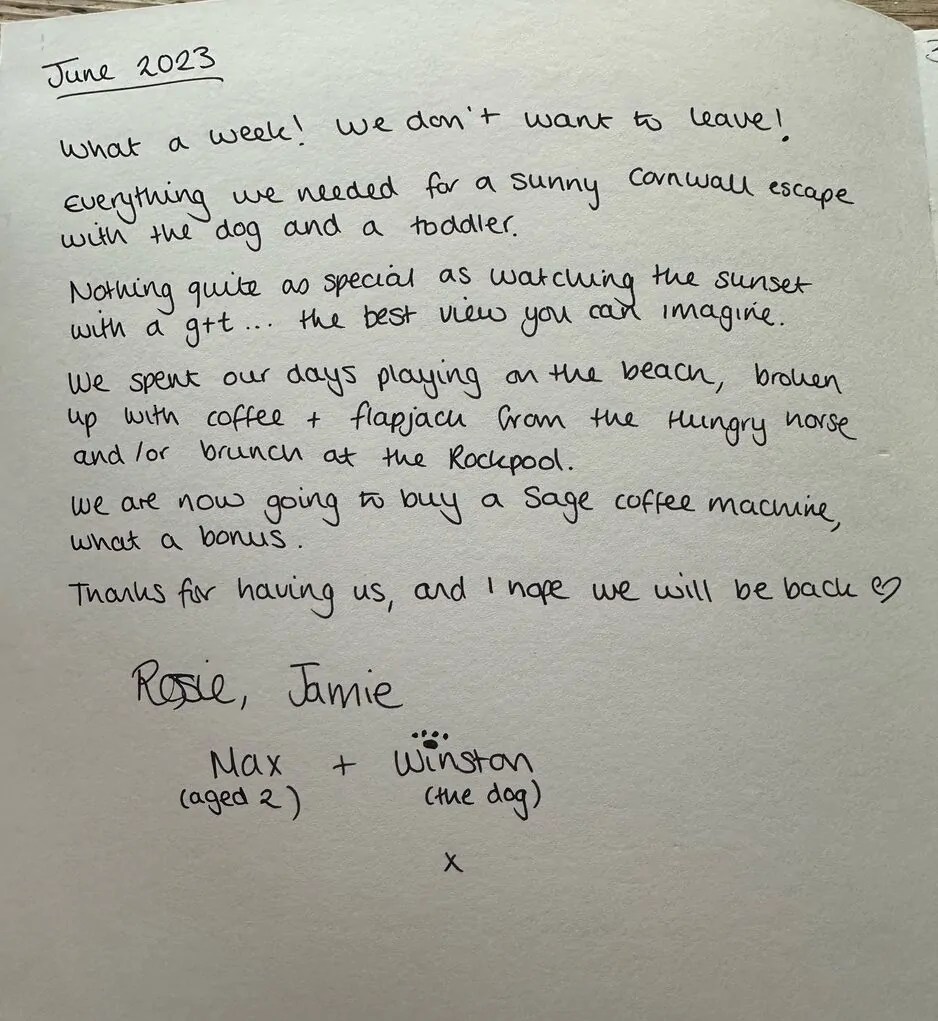 June 2023
What a week! We don't want to leave!
Everything we needed for a sunny Cornwall escape
with the dog and a toddler.
Nothing quite as special as watching the sunset
with a g+t... the best view you can imagine.
We spent our days playing on the beach, broken
up with coffee + flapjack from the Hungry horse
and/or brunch at the Rockpool.
We are now going to buy a Sage coffee machine,
what a bonus.
Thanks for having us, and I hope we will be back ♡
Rosie, Jamie
Max + Winston
(aged 2) (the dog)
x